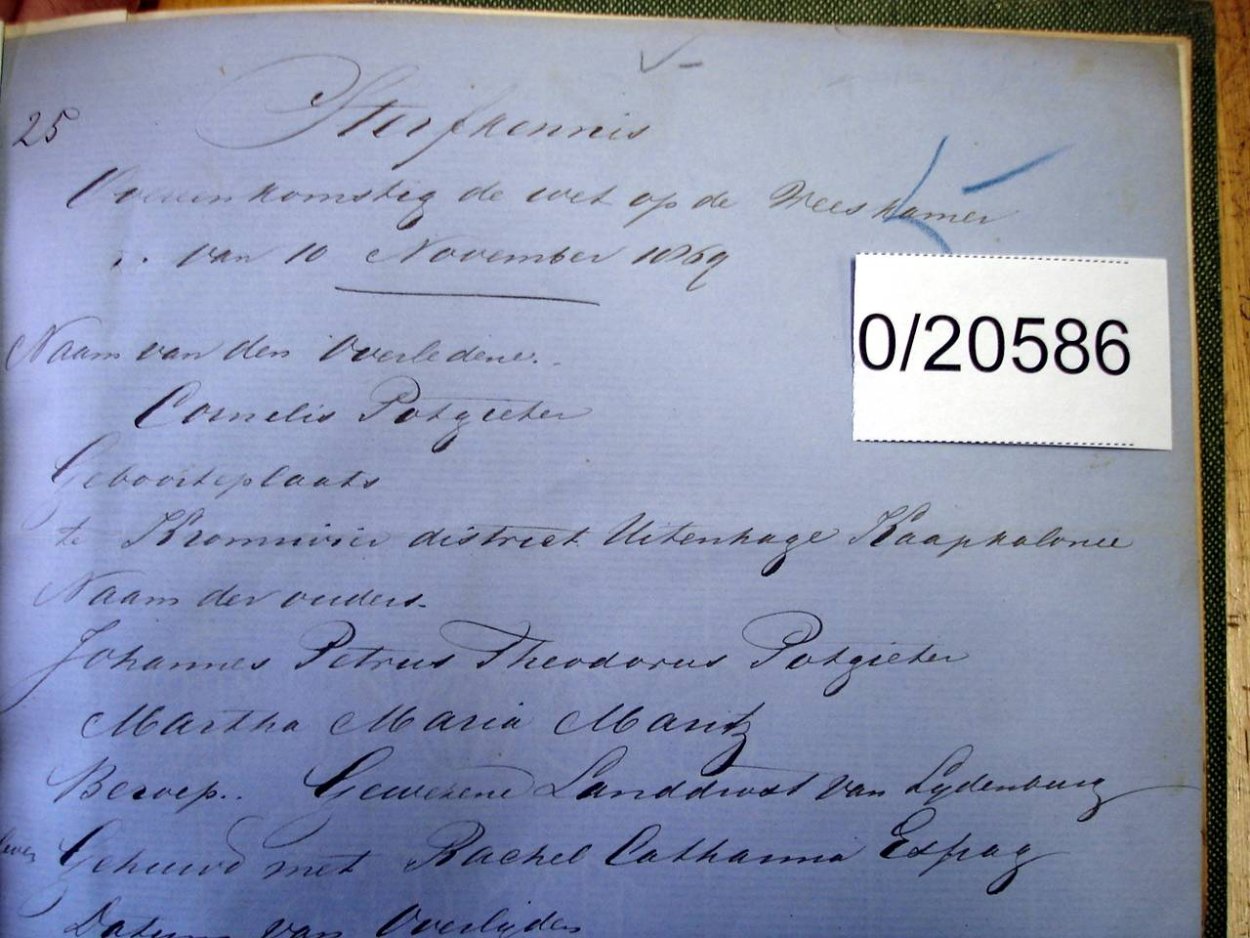 25 Sterfkennis
Overeenkomstig de wet op de Weeskamer
van 10 November 1869
0/20586
Naam van den Overledene.
Cornelis Potgieter
Geboorteplaats
te Kromrivier district Uitenhage Kaapkolonie
Naam der ouders.
Johannes Petrus Theodorus Potgieter
Martha Maria Maritz
Beroep. Gewezene Landdrost van Lydenburg
Gehuwd met Rachel Catharina Esprag
Datum van Overlijden